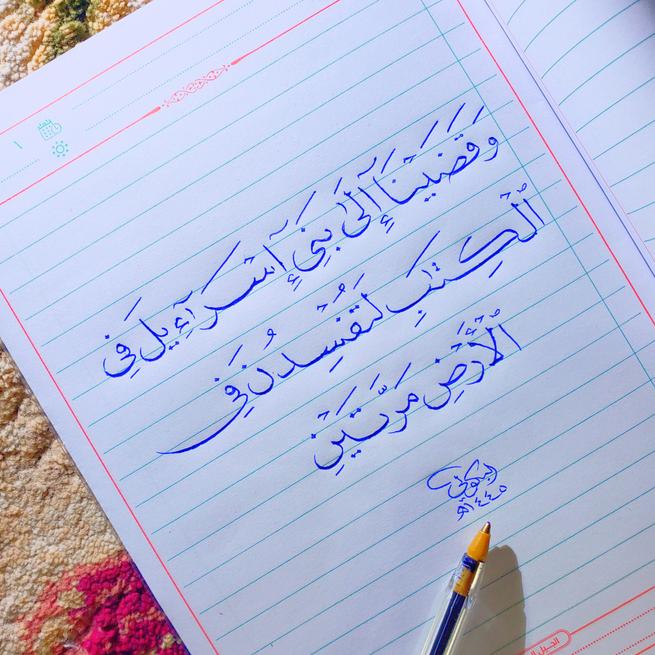 وَقَضَيْنَآ إِلَىٰ بَنِىٓ إِسْرَآءِيلَ فِى
ٱلْكِتَٰبِ لَتُفْسِدُنَّ فِى
ٱلْأَرْضِ مَرَّتَيْنِ
١